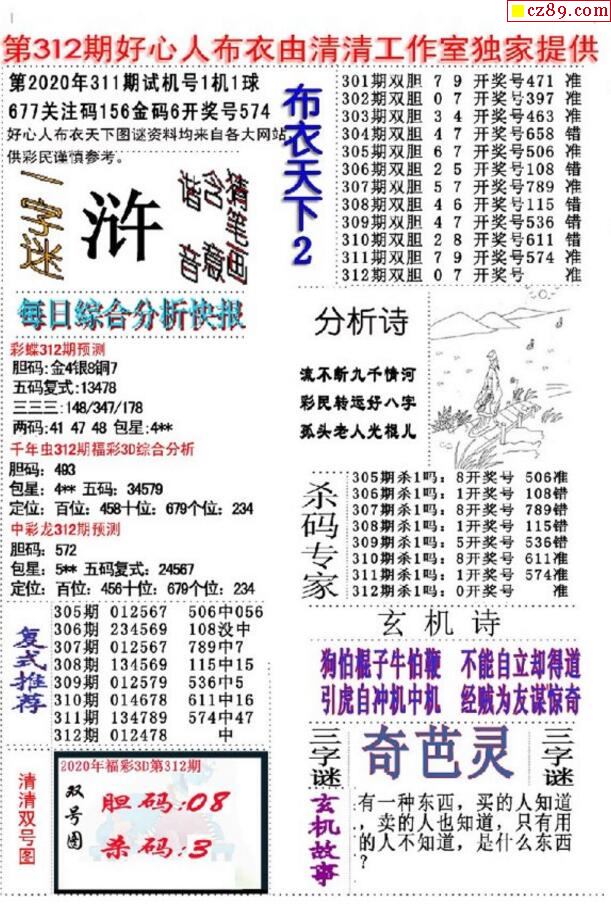 cz89.com
第312期好心人布衣由清清工作室独家提供
第2020年311期试机号1机1球
677关注码156金码6开奖号574
好心人布衣天下图谜资料均来自各大网站,
供彩民谨慎参考。
一字迷
浒
猜笔画
含意
谐音
布衣天下2
301期双胆 7 9 开奖号471 准
302期双胆 0 7 开奖号397 准
303期双胆 3 4 开奖号463 准
304期双胆 4 7 开奖号658 错
305期双胆 6 7 开奖号506 准
306期双胆 2 5 开奖号108 错
307期双胆 5 7 开奖号789 准
308期双胆 4 6 开奖号115 错
309期双胆 4 7 开奖号536 错
310期双胆 2 8 开奖号611 错
311期双胆 7 9 开奖号574 准
312期双胆 0 7 开奖号 准
每日综合分析快报
彩蝶312期预测
胆码:金4银8铜7
五码复式:13478
三三三:148/347/178
两码:41 47 48 包星:4**
千年虫312期福彩3D综合分析
胆码：493
包星：4** 五码：34579
定位：百位：458十位：679个位：234
中彩龙312期预测
胆码：572
包星：5** 五码复式：24567
定位：百位：456十位：679个位：234
分析诗
流不斩九千情河
彩民转运好八字
孤头老人光棍儿
杀码专家
305期杀1吗：8开奖号 506准
306期杀1吗：1开奖号 108错
307期杀1吗：8开奖号 789错
308期杀1吗：1开奖号 115错
309期杀1吗：5开奖号 536错
310期杀1吗：8开奖号 611准
311期杀1吗：1开奖号 574准
312期杀1吗：0开奖号 准
复式推荐
305期 012567 506中056
306期 234569 108没中
307期 012567 789中7
308期 134569 115中15
309期 012579 536中5
310期 014678 611中16
311期 134789 574中47
312期 012478 中
玄机诗
狗怕棍子牛怕鞭 不能自立却得道
引虎自冲机中机 经贼为友谋惊奇
三字谜
奇芭灵
三字谜
清清双号图
2020年福彩3D第312期
双号图
胆码:08
杀码:3
玄机故事
有一种东西，买的人知道
，卖的人也知道，只有用
的人不知道，是什么东西
？